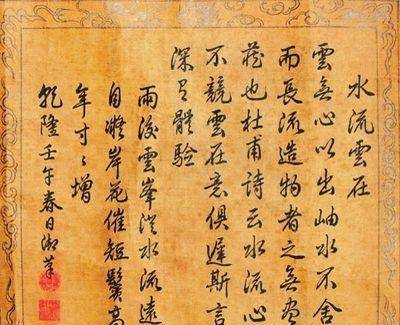 水流雲在
雲無心以出岫水不舍
而長流造物者之無盡
藏也杜甫詩云水流心
不競雲在意俱遲斯言
深足體驗
雨後雲峯澄水流遠
自凝岸花催短鬢高
年寸〻增
乾隆壬午春日御筆